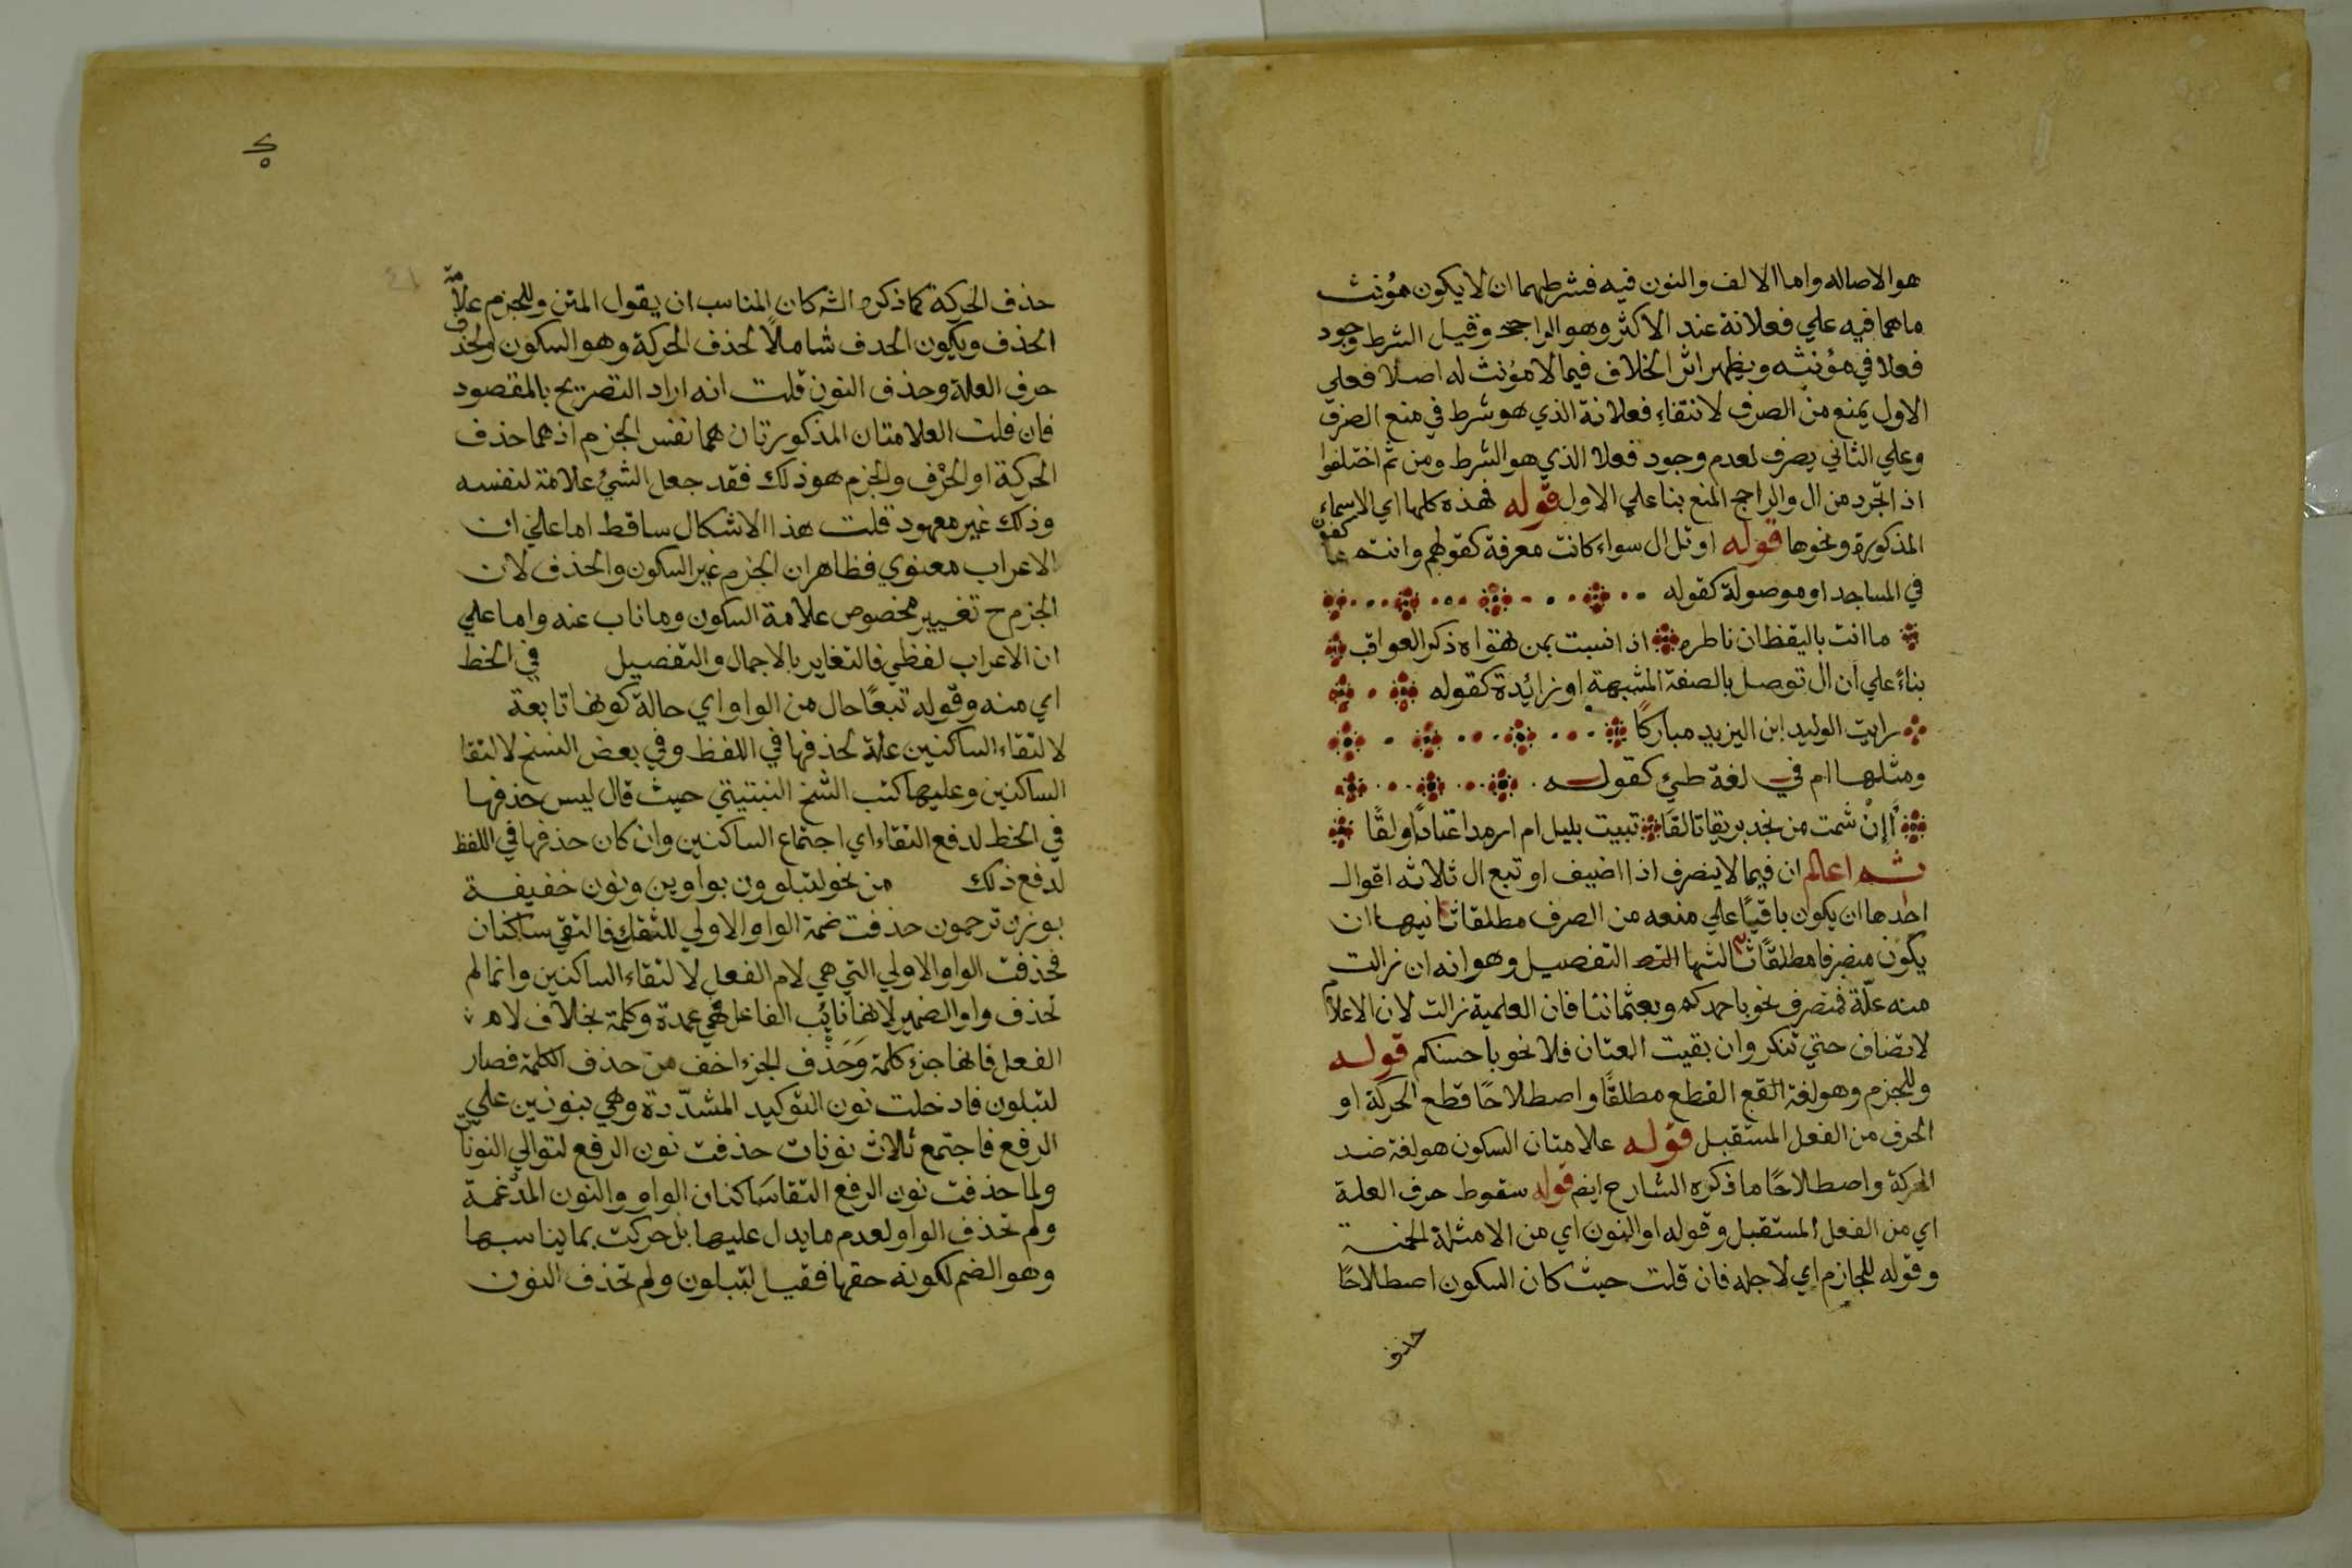 هو الاصاله واما الالف والنون فيه فشرطهما ان لا يكون مؤنث
ماهما فيه علي فعلانة عند الاكثر وهو الراجح وقيل الشرط وجود
فعلا في مؤنثه ويظهر اثر الخلاف فيما لا مؤنث له اصلا فعلي
الاول يمنع من الصرف لانتفاء فعلانة الذي هو شرط في منع الصرف
وعلي الثاني يصرف لعدم وجود فعلا الذي هو الشرط ومن ثم اختلفوا
اذ اتجرد من ال والراجح المنع بنا علي الاول قوله فهذه كلها اي الاسماء
المذكورة ونحوها قوله او تل ال سواء كانت معرفة كقولهم وانتم عاكفون
في المساجد او موصولة كقوله
ما انت باليقظان ناطره اذا نسيت بمن تهواه ذكر العواقب
بناءً علي ان ال توصل بالصفة المشبهة او زائدة كقوله
رايت الوليد ابن اليزيد مباركًا
ومثلها ام في لغة طيئ كقوله
أإنْ شمت من نجد بريقا تالقا تبيت بليل ام ارمد اعتاد اولقًا
اعلم ان فيما لا ينصرف اذا اضيف او تبع ال ثلاثه اقوال
احدها ان يكون باقيًا علي منعه من الصرف مطلقا ثانيها ان
يكون منصرفا مطلقًا ثالثها التفصيل وهو انه ان زالت
منه علّة فمنصرف نحو باحمدكم وبعثماننا فان العلمية زالت لان الاعلام
لا تضاف حتي تنكر وان بقيت العتان فلا نحو باحسنكم قوله
وللجزم وهو لغة القع القطع مطلقًا واصطلاحًا قطع الحركة او
الحرف من الفعل المستقبل قوله علامتان السكون هو لغة ضد
الحركة واصطلاحًا ما ذكره الشارح ايضم قوله سقوط حرف العلة
اي من الفعل المستقبل وقوله او النون اي من الامثلة الخمسة
وقوله للجازم اي لاجله فان قلت حيث كان السكون اصطلاحًا
حذف
حذف الحركة كما ذكره الشه كان المناسب ان يقول المتن وللجزم علامة
الحذف ويكون الحدف شاملًا لحذف الحركة وهو السكون ولحذف
حرف العلة وحذف النون قلت انه اراد التصريح بالمقصود
فان قلت العلامتان المذكورتان هما نفس الجزم اذ هما حذف
الحركة او الحرْف والجزم هو ذلك فقد جعل الشيئ علامة لنفسه
وذلك غير معهود قلت هذا الاشكال ساقط اما علي ان
الاعراب معنوي فظاهر ان الجزم غير السكون والحذف لان
الجزم ح تغيير مخصوص علامة السكون وما ناب عنه واما علي
ان الاعراب لفظي فالتغاير بالاجمال والتفصيل في الخط
اي منه وقوله تبعًا حال من الواو اي حالة كونها تابعة
لالتقاء الساكنين علة لحذفها في اللفظ وفي بعض النسخ لا لتقا
الساكنين وعليها كتب الشخ النبتيتي حيث قال ليس حذفها
في الخط لدفع التقاء اي اجتماع الساكنين وان كان حذفها في اللفظ
لدفع ذلك من نحو لتبلوون بواوين ونون خفيفة
بوزن ترحمون حذفت ضمة الواو الاولي للثقل فالتقي ساكنان
فحذفت الواو الاولي التي هي لام الفعل لالتقاء الساكنين وانما لم
تحذف واو الضمير لانها نائب الفاعل فهي عمدة وكلمة بخلاف لام
الفعل فانها جزء كلمة وَحَذْف الجزء اخف من حذف الكلمة فصار
لتبلون فادخلت نون التوكيد المشدّدة وهي بنونين علي
الرفع فاجتمع ثلاث نونات حذفت نون الرفع لتوالي النونات
ولما حذفت نون الرفع التقا ساكنان الواو والنون المدغمة
ولم تحذف الواو لعدم ما يدل عليها بل حركت بما يناسبها
وهو الضم لكونه حقها فقيل لتبلون ولم تحذف النون